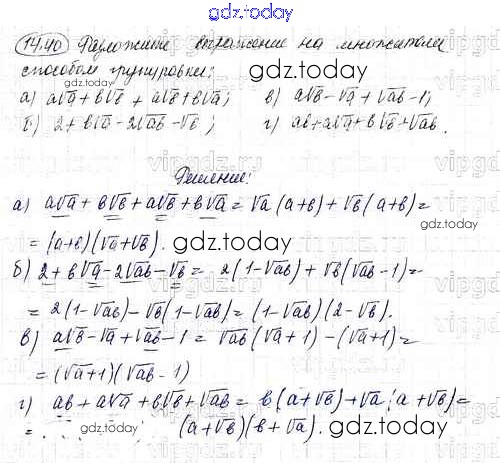 gdz.today
14.40 Разложите выражение на множители
способом группировки:
gdz.today
а) a√a + b√b + a√b + b√a; в) a√b - √a + √ab - 1;
б) 2 + b√a - 2√ab - √b; г) ab + a√a + b√b + √ab.
Решение:
а) a√a + b√b + a√b + b√a = √a (a+b) + √b (a+b) =
= (a+b)(√a+√b).
gdz.today
б) 2 + b√a - 2√ab - √b = 2(1-√ab) + √b(√ab-1) =
= 2(1-√ab) - √b(1-√ab) = (1-√ab)(2-√b).
в) a√b - √a + √ab - 1 = √ab(√a+1) - (√a+1) =
= (√a+1)(√ab-1)
gdz.today
г) ab + a√a + b√b + √ab = b(a+√b) + √a(a+√b) =
= (a+√b)(b+√a).
gdz.today
vipgdz.ru